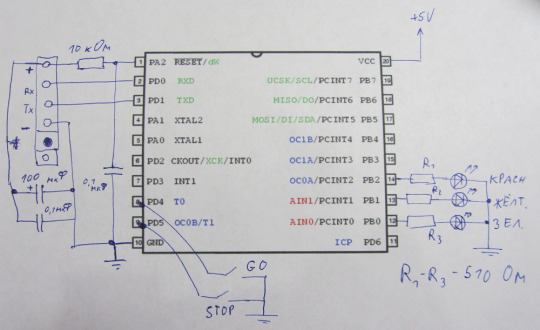 +5V
10 кОм
+
Rx
Tx
-
1 PA2 RESET/dW
2 PD0 RXD
3 PD1 TXD
4 PA1 XTAL2
5 PA0 XTAL1
6 PD2 CKOUT/XCK/INT0
7 PD3 INT1
8 PD4 T0
9 PD5 OC0B/T1
10 GND
VCC 20
UCSK/SCL/PCINT7 PB7 19
MISO/DO/PCINT6 PB6 18
MOSI/DI/SDA/PCINT5 PB5 17
OC1B/PCINT4 PB4 16
OC1A/PCINT3 PB3 15
OC0A/PCINT2 PB2 14
AIN1/PCINT1 PB1 13
AIN0/PCINT0 PB0 12
ICP PD6 11
100 мкФ
+
0,1мкФ
0,1 мкФ
R1 КРАСН
R2 ЖЁЛТ.
R3 ЗЕЛ.
GO
STOP
R1-R3-510 Ом